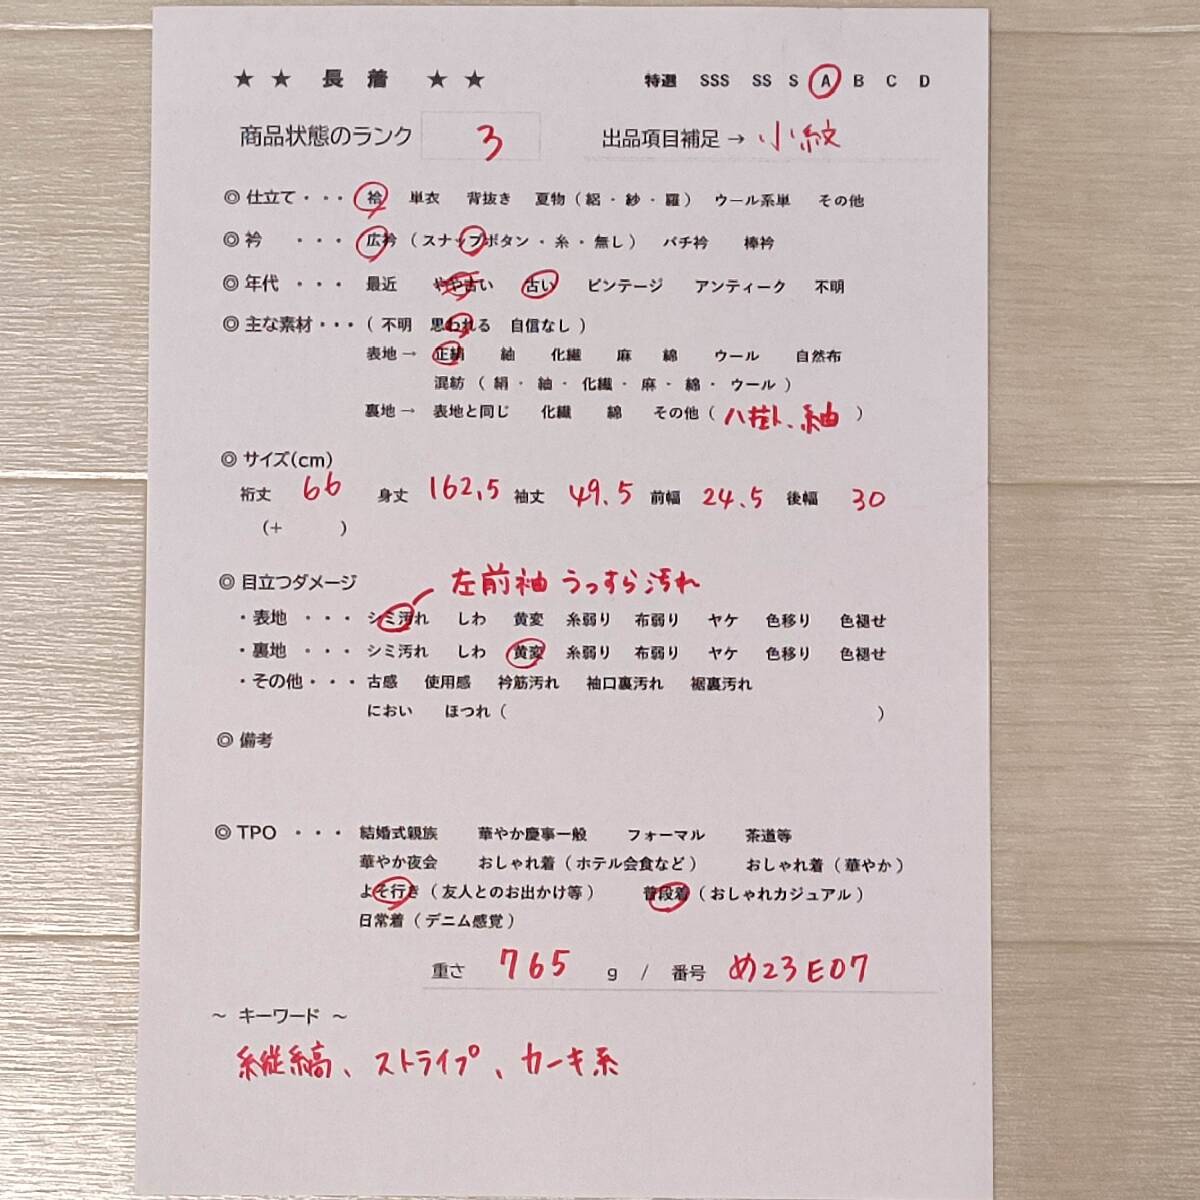 ★ ★ 長 着 ★ ★ 特選 SSS SS S A B C D
商品状態のランク 3 出品項目補足 → 小紋
◎ 仕立て・・・ 袷 単衣 背抜き 夏物（絽・紗・羅） ウール系単 その他
◎ 衿 ・・・ 広衿（スナップボタン・糸・無し） バチ衿 棒衿
◎ 年代 ・・・ 最近 やや古い 古い ビンテージ アンティーク 不明
◎ 主な素材・・・（ 不明 思われる 自信なし ）
表地 → 正絹 紬 化繊 麻 綿 ウール 自然布
混紡（ 絹・紬・化繊・麻・綿・ウール ）
裏地 → 表地と同じ 化繊 綿 その他（ 八掛、紬 ）
◎ サイズ(cm)
裄丈 66 身丈 162.5 袖丈 49.5 前幅 24.5 後幅 30
(+ )
◎ 目立つダメージ 左前袖 うっすら汚れ
・表地 ・・・ シミ汚れ しわ 黄変 糸弱り 布弱り ヤケ 色移り 色褪せ
・裏地 ・・・ シミ汚れ しわ 黄変 糸弱り 布弱り ヤケ 色移り 色褪せ
・その他・・・ 古感 使用感 衿筋汚れ 袖口裏汚れ 裾裏汚れ
におい ほつれ（ ）
◎ 備考
◎ TPO ・・・ 結婚式親族 華やか慶事一般 フォーマル 茶道等
華やか夜会 おしゃれ着（ホテル会食など） おしゃれ着（華やか）
よそ行き（友人とのお出かけ等） 普段着（おしゃれカジュアル）
日常着（デニム感覚）
重さ 765 g / 番号 め23E07
～ キーワード ～
縦縞、ストライプ、カーキ系